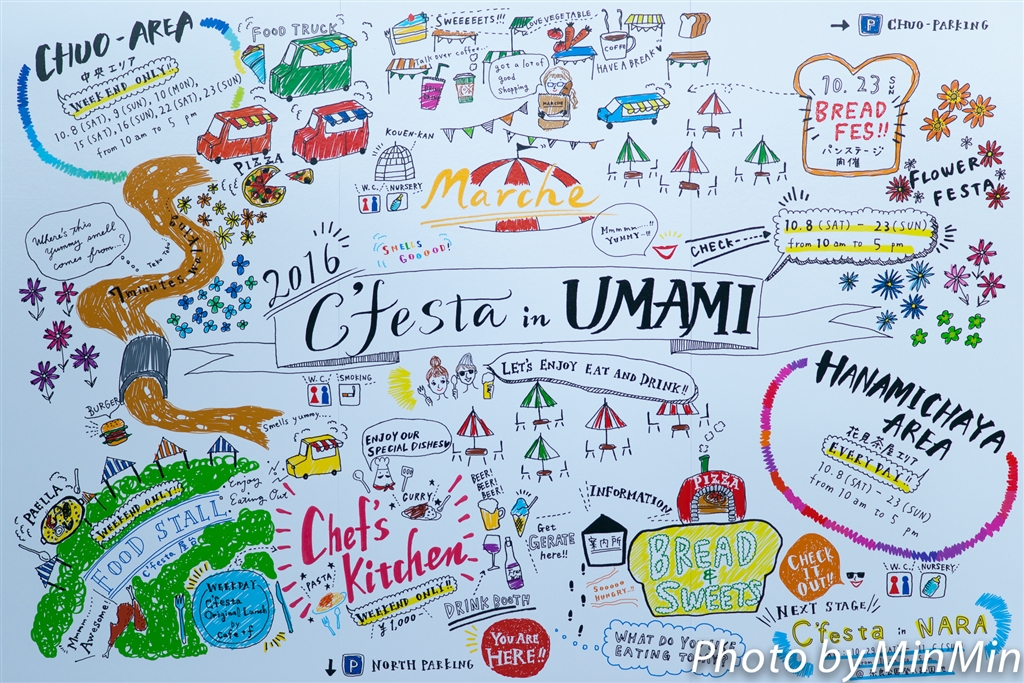 CHUO-AREA
中央エリア
WEEKEND ONLY!!
10.8 (SAT), 9 (SUN), 10 (MON),
15 (SAT), 16 (SUN), 22 (SAT), 23 (SUN)
from 10 am to 5 pm
FOOD TRUCK
PIZZA
SWEEEEETS!!!
LOVE VEGETABLE
Talk over coffee...
got a lot of
good
shopping
MARCHE
COFFEE
HAVE A BREAK
→ P CHUO-PARKING
10. 23 SUN
BREAD
FES!!
パンステージ
開催
FLOWER
FESTA
KOUEN-KAN
W.C. NURSERY
Marche
SMELLS
GOOOOD!
Mmmm...
YUMMY...!!
CHECK
10.8 (SAT) - 23 (SUN)
from 10 am to 5 pm
Where's this
yummy smell
comes from...?
7 minutes walk
2016
C'festa in UMAMI
W.C. SMOKING
LET'S ENJOY EAT AND DRINK!!
HANAMICHAYA
AREA
花見茶屋エリア
EVERYDAY!
10.8 (SAT) - 23 (SUN)
from 10 am to 5 pm
BURGER
Smells yummy....
ENJOY OUR
SPECIAL DISHES
CURRY
BEER!
BEER!
BEER!
PAELLA
WEEKEND ONLY!!
Enjoy
Eating Out
FOOD STALL
C'festa 屋台
Mmm...
Awesome!
WEEKDAY
C'festa
Original Lunch
by
Cafe+f
Chef's
Kitchen
PASTA
WEEKEND ONLY!!
¥1,000-
DRINK BOOTH
Get
GERATE
here!!
INFORMATION
案内所
Sooooo
HUNGRY..!!
PIZZA
BREAD
&
SWEETS
CHECK
IT
OUT!!
W.C. NURSERY
YOU ARE
HERE!!
↓ P NORTH PARKING
WHAT DO YOU
EATING TO
NEXT STAGE!!
C'festa in NARA
Photo by MinMin